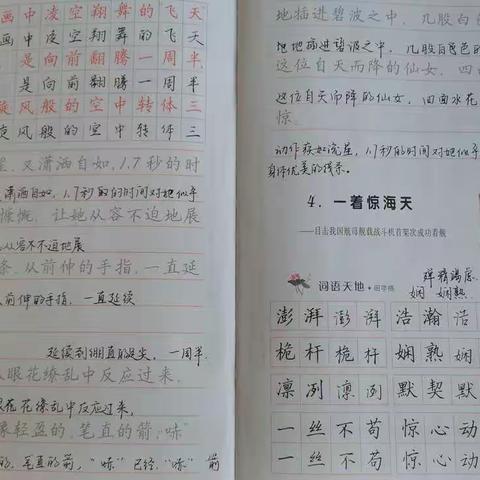 画中凌空翔舞的飞天
画中凌空翔舞的飞天
是向前翻腾一周半,
是向前翻腾一周半
旋风般的空中转体三
旋风般的空中转体三
又潇洒自如,1.7秒的时
潇洒自如,1.7秒的的时间对她似乎
慷慨,让她从容不迫地展
从容不不迫地展
从前伸的手指,一直延
前伸的手指,一直延续
延续到绷直的足尖,一周半
眼花缭乱中反应过来,
眼花花缭乱中反应过来,
像轻盈的、笔直的箭,“哧”
的,笔直的箭,“哧”已经,“哧”箭
地插进碧波之中,几股白
地地插进碧波之中,几股白色的
这位自天而降的仙女,四
这位自天而降的仙女,四面水花
惊。
动作疾如流星,1.7秒的时间对她似乎
身体优美的线条。
4.一着惊海天
——目击我国航母舰载战斗机首架次成功着舰
殚精竭虑
词语天地·田字格
娴 娴熟
澎湃澎湃浩瀚浩
桅杆桅杆娴熟娴
凛冽凛冽默契默
一丝不苟惊心动
一丝不苟惊心动